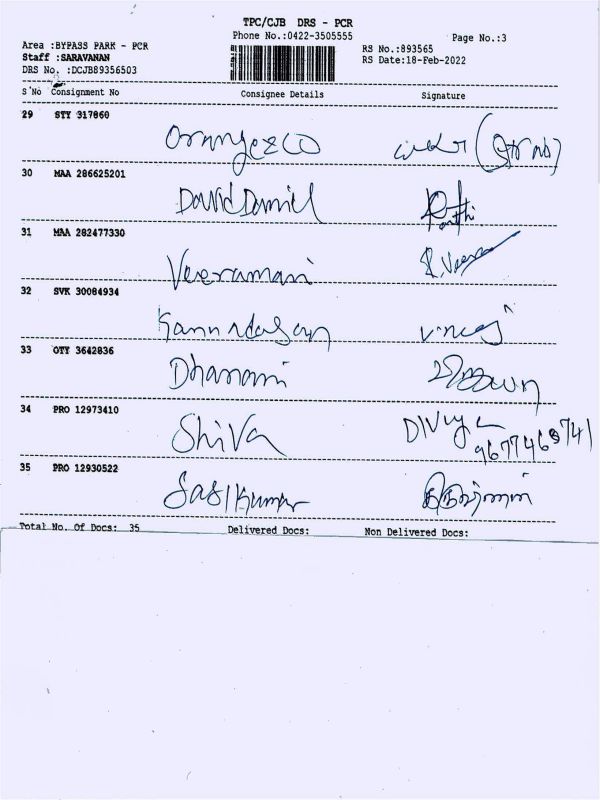 TPC/CJB DRS - PCR
Phone No.:0422-3505555
Page No.:3
Area :BYPASS PARK - PCR
RS No.:893565
Staff :SARAVANAN
RS Date:18-Feb-2022
DRS No. :DCJB89356503
S No Consignment No Consignee Details Signature
29 STY 317860
Orangesco
30 MAA 286625201
David Daniel
31 MAA 282477330
Veeramani
32 SVK 30084934
Kannadasan
33 OTY 3642836
Dhanam
34 PRO 12973410
Shiva Divya
35 PRO 12930522
Sasikumar
Total No. Of Docs: 35 Delivered Docs: Non Delivered Docs: